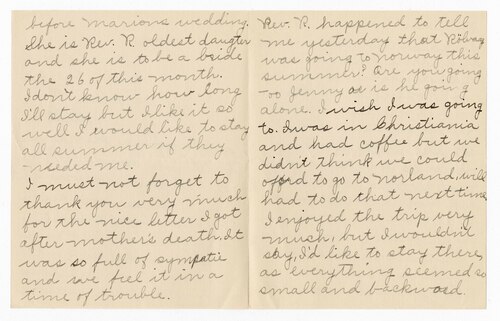 before marions wedding.
She is Rev. R. oldest daugter
and she is to be a bride
the 26 of this month.
I don't know how long
I'll stay but I like it so
well I would like to stay
all summer if they
needed me.
I must not forget to
thank you very much
for the nice letter I got
after mother's death. It
was so full of sympatie
and we feel it in a
time of trouble.
Rev. R. happened to tell
me yesterday that Rölvaag
was going to norway this
summer? Are you going
too Jenny or is he going
alone. I wish I was going
to. I was in Christiania
and had coffee but we
didn't think we could
afford to go to norland, will
had to do that next time
I enjoyed the trip very
much, but I wouldn't
say, I'd like to stay there,
as everything seemed so
small and backword.